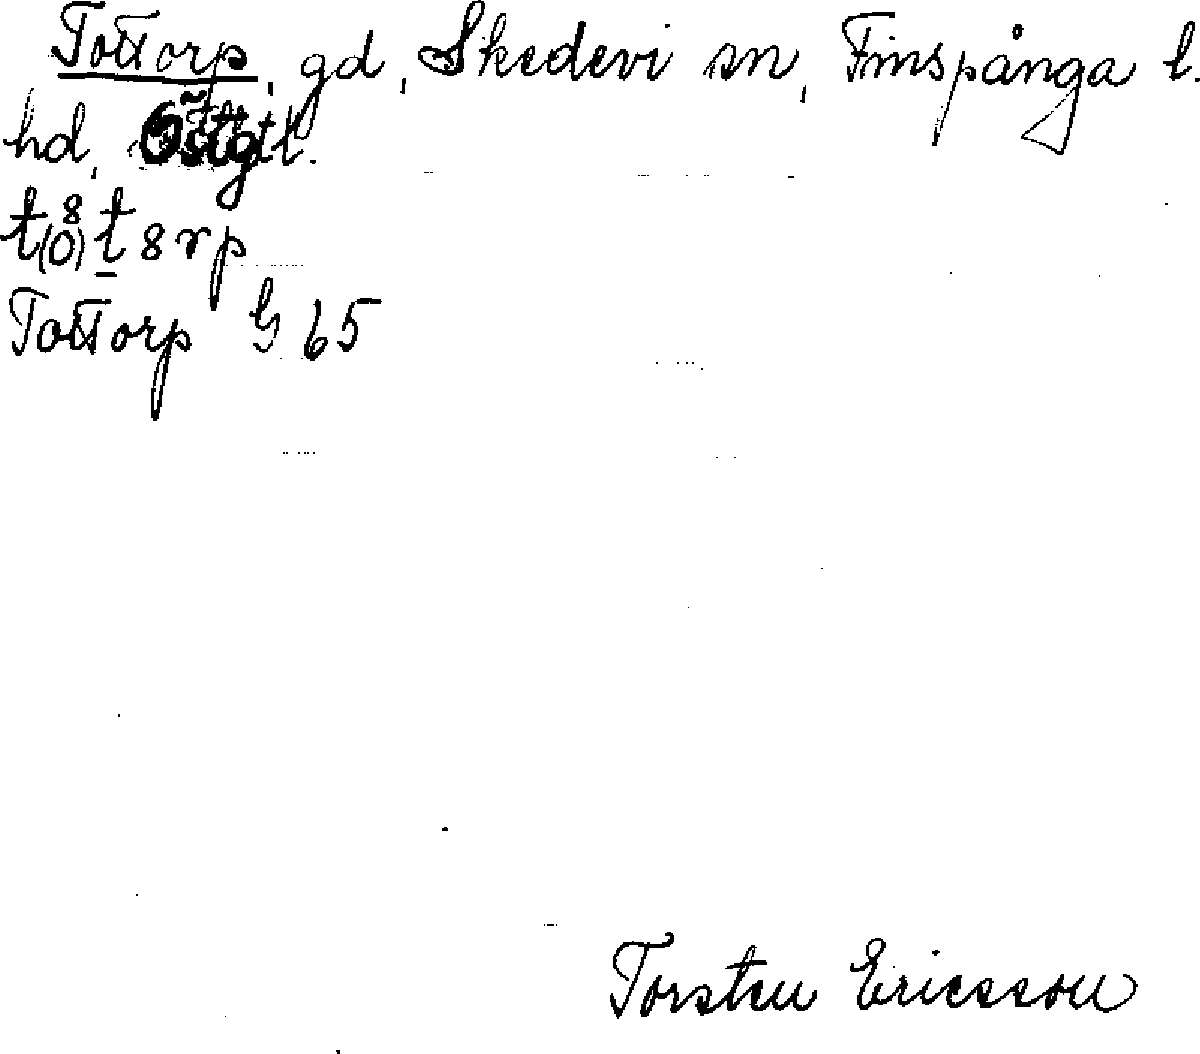 Tottorp, gd, Skedevi sn, Finspånga l.
hd, Östgtl.
t(o)8t8rp
Tottorp G 65
Torsten Ericsson